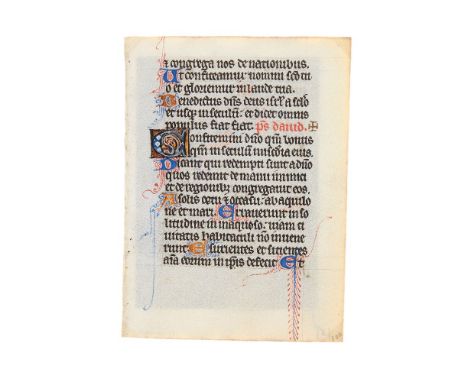 a congrega nos de nationibus.
Ut confiteamur nomini sco tu
o et gloriemur in laude tua.
Benedictus dns deus isrl a sclo
et usq; in seculum: et dicet omnis
populus fiat fiat. ps david.
Confitemini dno qm bonus
qm in seculum misericordia eius.
Dicant qui redempti sunt a dno
quos redemit de manu inimici
et de regionib; congregavit eos.
A solis ortu et occasu: ab aquilo
ne et mari. Erraverunt in so
litudine in inaquoso: viam ci
vitatis habitaculi non invene
runt. Esurientes et sitientes
aia eorum in ipis defecit. Et